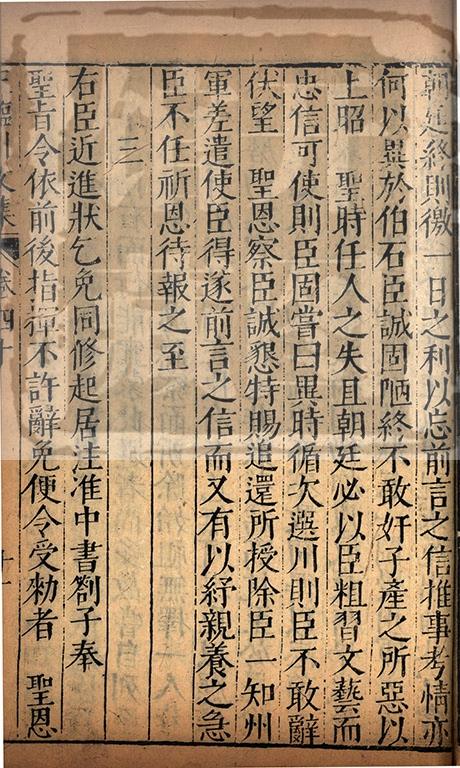 朝廷終則徼一日之利以忘前言之信推事考情亦
何以異於伯石臣誠固陋終不敢奸子產之所惡以
上昭　聖時任人之失且朝廷必以臣粗習文藝而
忠信可使則臣固嘗曰異時循次選川則臣不敢辭
伏望　聖恩察臣誠懇特賜追還所授除臣一知州
軍差遣使臣得遂前言之信而又有以紓親養之急
臣不任祈恩待報之至
三
右臣近進狀乞免同修起居注准中書劄子奉
聖旨令依前後指揮不許辭免便令受勑者　聖恩
臨川文集　卷四十
十一